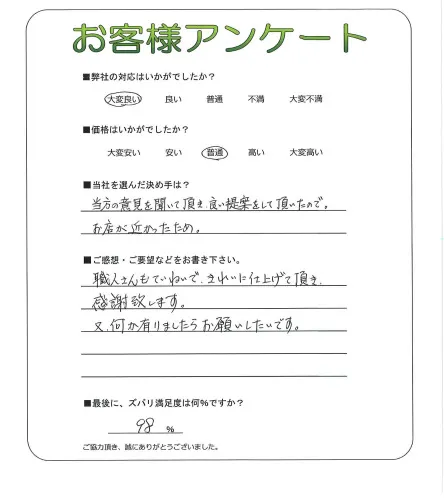 お客様アンケート
■弊社の対応はいかがでしたか？
大変良い 良い 普通 不満 大変不満
■価格はいかがでしたか？
大変安い 安い 普通 高い 大変高い
■当社を選んだ決め手は？
当方の意見を聞いて頂き、良い提案をして頂いたので。
お店が近かったため。
■ご感想・ご要望などをお書き下さい。
職人さんもていねいで、きれいに仕上げて頂き、
感謝致します。
又、何か有りましたらお願いしたいです。
■最後に、ズバリ満足度は何％ですか？
98 ％
ご協力頂き、誠にありがとうございました。